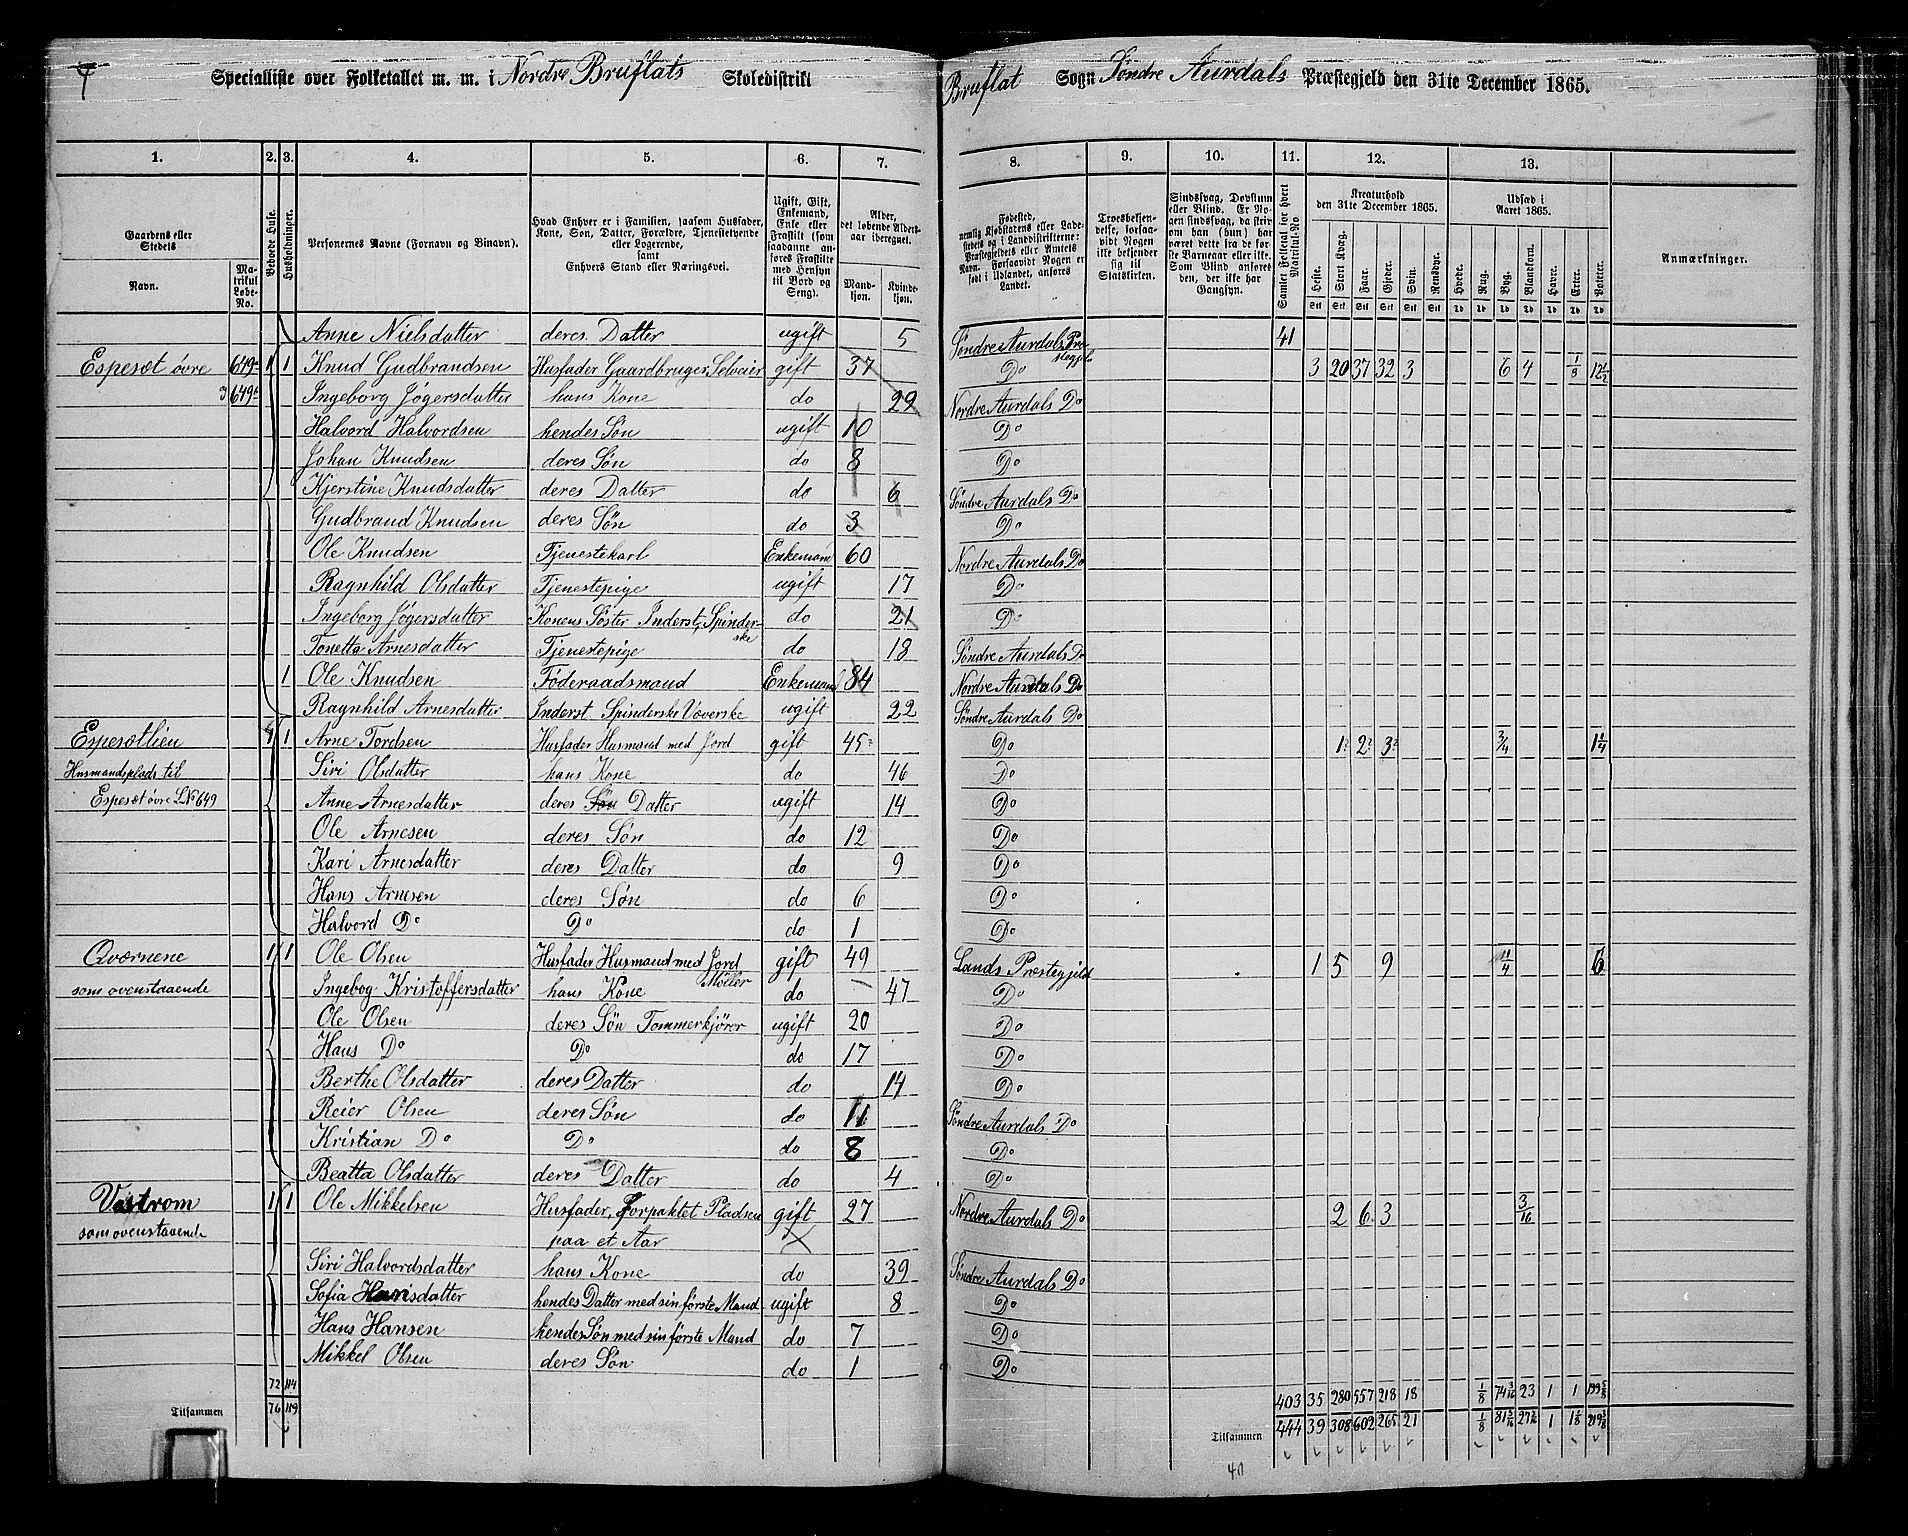 Specialliste over Folketallet m. m. i Nordre Bruflats Skoledistrikt
Bruflat Sogn Søndre Aurdals Præstegjeld den 31te December 1865.
1. 2. 3. 4. 5. 6. 7. 8. 9. 10. 11. 12. 13.
Gaardens eller Stedets
Navn.
Matrikul Løbe-No.
Beboede Huse.
Husholdninger.
Personernes Navne (Fornavn og Binavn).
Hvad Enhver er i Familien, saasom Husfader, Kone, Søn, Datter, Forældre, Tjenestetyende eller Logerende, samt Enhvers Stand eller Næringsvei.
Ugift, Gift, Enkemand, Enke eller Fraskilt (som saadanne anføres Fraskilte med Hensyn til Bord og Seng).
Alder, det løbende Aldersaar iberegnet.
Mandkjøn.
Kvindekjøn.
Fødested, nemlig Kjøbstadens eller Ladestedets og i Landdistrikterne: Præstegjeldets eller Amtets Navn. Forsaavidt Nogen er født i Udlandet, anføres Landet.
Troesbekjendelse, forsaavidt Nogen ikke bekjender sig til Statskirken.
Sindssvag, Døvstum eller Blind. Er Nogen sindssvag, da skriv om han (hun) har været dette fra de første Barneaar eller ikke. Som Blind anføres den, der ikke har Gangsyn.
Samlet Folketal for hvert Matrikul-No
Kreaturhold den 31te December 1865.
Heste. Stort Kvæg. Faar. Gjeder. Svin. Rensdyr.
Udsæd i Aaret 1865.
Hvede. Rug. Byg. Blandkorn. Havre. Erter. Poteter.
Anmærkninger.
Anne Nielsdatter deres Datter ugift 5 Søndre Aurdals Præstegjeld 41
Espesæt øvre 649 1 1 Knud Gudbrandsen Husfader Gaardbruger, Selveier gift 37 Do 3 20 37 32 3 6 4 12 1/2
649 Ingeborg Jøgersdatter hans Kone do 29 Nordre Aurdals Do
Halvord Halvordsen hendes Søn ugift 10 Do
Johan Knudsen deres Søn do 8 Do
Kjerstine Knudsdatter deres Datter do 6 Søndre Aurdals Do
Gudbrand Knudsen deres Søn do 3 Do
Ole Knudsen Tjenestekarl Enkemand 60 Nordre Aurdals Do
Ragnhild Olsdatter Tjenestepige ugift 17 Do
Ingeborg Jøgersdatter Konens Søster Inderst, Spinderske do 21 Do
Tonetta Arnesdatter Tjenestepige do 18 Søndre Aurdals Do
1 Ole Knudsen Føderaadsmand Enkemand 84 Nordre Aurdals Do
Ragnhild Arnesdatter Inderst Spinderske Væverske ugift 22 Søndre Aurdals Do
Espesætlien 1 1 Arne Tordsen Husfader Husmand med Jord gift 45 Do 1 2 3 3/4 1 1/4
Husmandsplads til Siri Olsdatter hans Kone do 46 Do
Espesæt øvre LNo 649 Anne Arnesdatter deres Søn Datter ugift 14 Do
Ole Arnesen deres Søn do 12 Do
Kari Arnesdatter deres Datter do 9 Do
Hans Arnesen deres Søn do 6 Do
Halvord Do Do do 1 Do
Qværnene 1 1 Ole Olsen Husfader Husmand med Jord Møller gift 49 Lands Præstegjeld 1 5 9 11/4 6
som ovenstaaende Ingebog Kristoffersdatter hans Kone do 47 Do
Ole Olsen deres Søn Tømmerkjører ugift 20 Do
Hans Do Do do 17 Do
Berthe Olsdatter deres Datter do 14 Do
Reier Olsen deres Søn do 11 Søndre Aurdals Do
Kristian Do Do do 8 Do
Beatta Olsdatter deres Datter do 4 Do
Vestrom 1 1 Ole Mikkelsen Husfader, Forpaktet Pladsen gift 27 Nordre Aurdals Do 2 6 3 3/16
som ovenstaaende paa et Aar
Siri Halvordsdatter hans Kone do 39 Søndre Aurdals Do
Sofia Hansdatter hendes Datter med sin første Mand ugift 8 Do
Hans Hansen hendes Søn med sin første Mand do 7 Do
Mikkel Olsen deres Søn do 1 Do
72 114 403 35 280 557 218 18 1/8 74 3/16 23 1 1 199 5/8
Tilsammen 76 119 Tilsammen 444 39 308 602 265 21 1/8 1 219 3/8
40